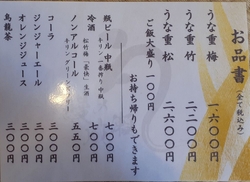 お品書 (全て税込み)
うな重 梅 一、六〇〇円
うな重 竹 二、二〇〇円
うな重 松 二、六〇〇円
ご飯大盛り 一〇〇円
お持ち帰りもできます
瓶ビール 中瓶 七〇〇円
キリン 一番搾り 中瓶
冷酒 七〇〇円
松竹梅 「豪快」 生酒
ノンアルコール 五五〇円
キリン グリーンズフリー
コーラ 三〇〇円
ジンジャーエール 三〇〇円
オレンジジュース 三〇〇円
烏龍茶 三〇〇円